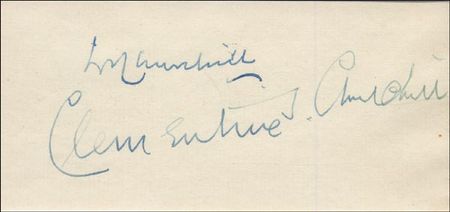 W Churchill
Clementine S. Churchill